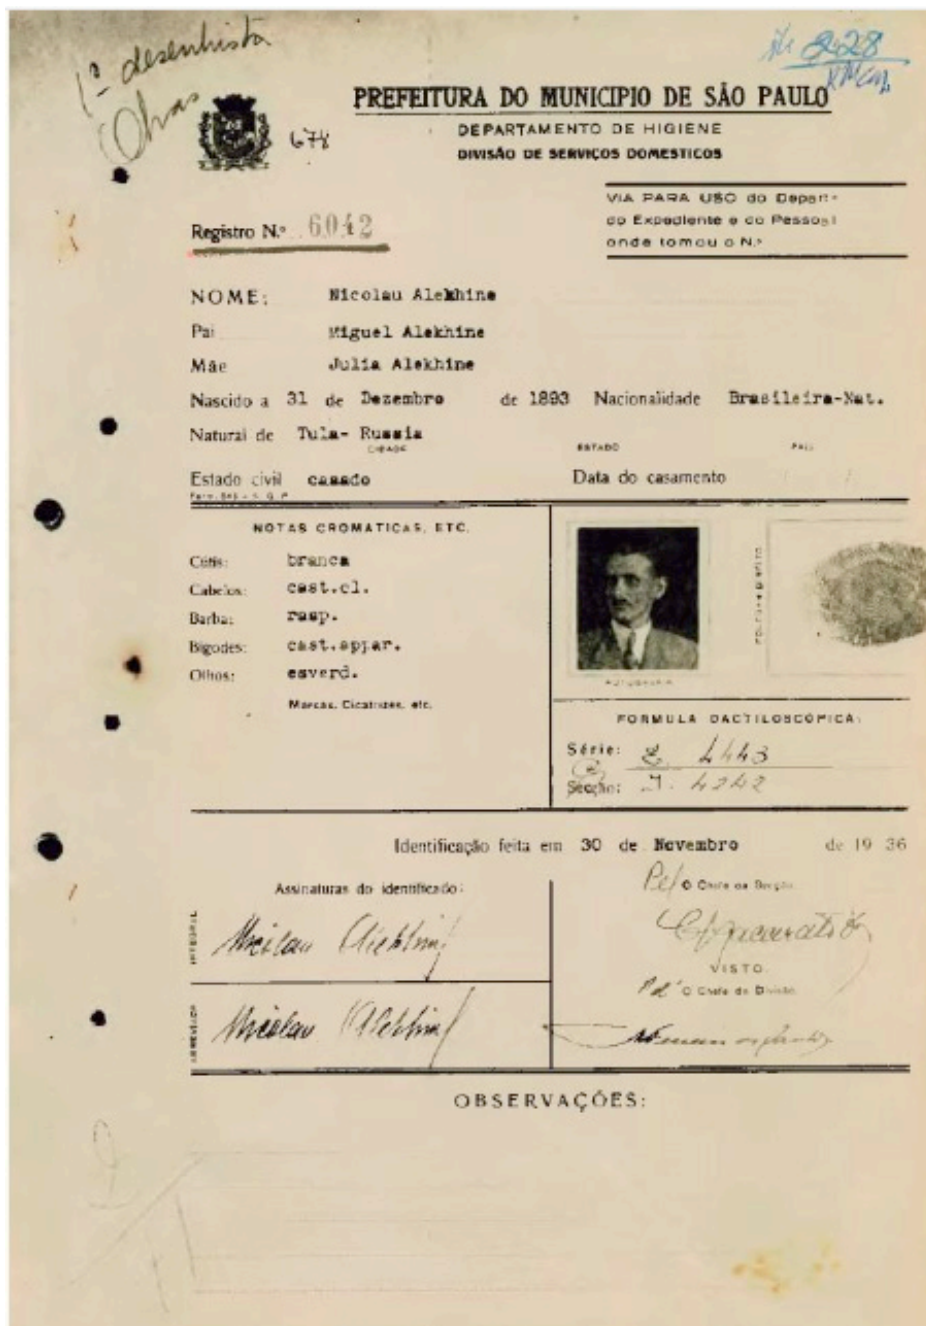 1º desenhista
Obras
678
PREFEITURA DO MUNICIPIO DE SÃO PAULO
DEPARTAMENTO DE HIGIENE
DIVISÃO DE SERVIÇOS DOMESTICOS
VIA PARA USO do Depart.
do Expediente e do Pessoal
onde tomou o N.º
Registro N.º 6042
NOME: Nicolau Alekhine
Pai Miguel Alekhine
Mãe Julia Alekhine
Nascido a 31 de Dezembro de 1893 Nacionalidade Brasileira-Nat.
Natural de Tula- Russia
CIDADE ESTADO PAIZ
Estado civil casado Data do casamento
NOTAS CROMATICAS, ETC.
Cútis: branca
Cabelos: cast.cl.
Barba: rasp.
Bigodes: cast.appar.
Olhos: esverd.
Marcas, Cicatrizes, etc.
FOTOGRAFIA
POLEGAR DIREITO
FORMULA DACTILOSCÓPICA:
Série: 4443
Secção: 4242
Identificação feita em 30 de Novembro de 19 36
Assinaturas do identificado:
INTEGRAL
Nicolau Alekhine
ABREVIADA
Nicolau Alekhine
Pel O Chefe da Secção
VISTO.
Pel O Chefe da Divisão
OBSERVAÇÕES: